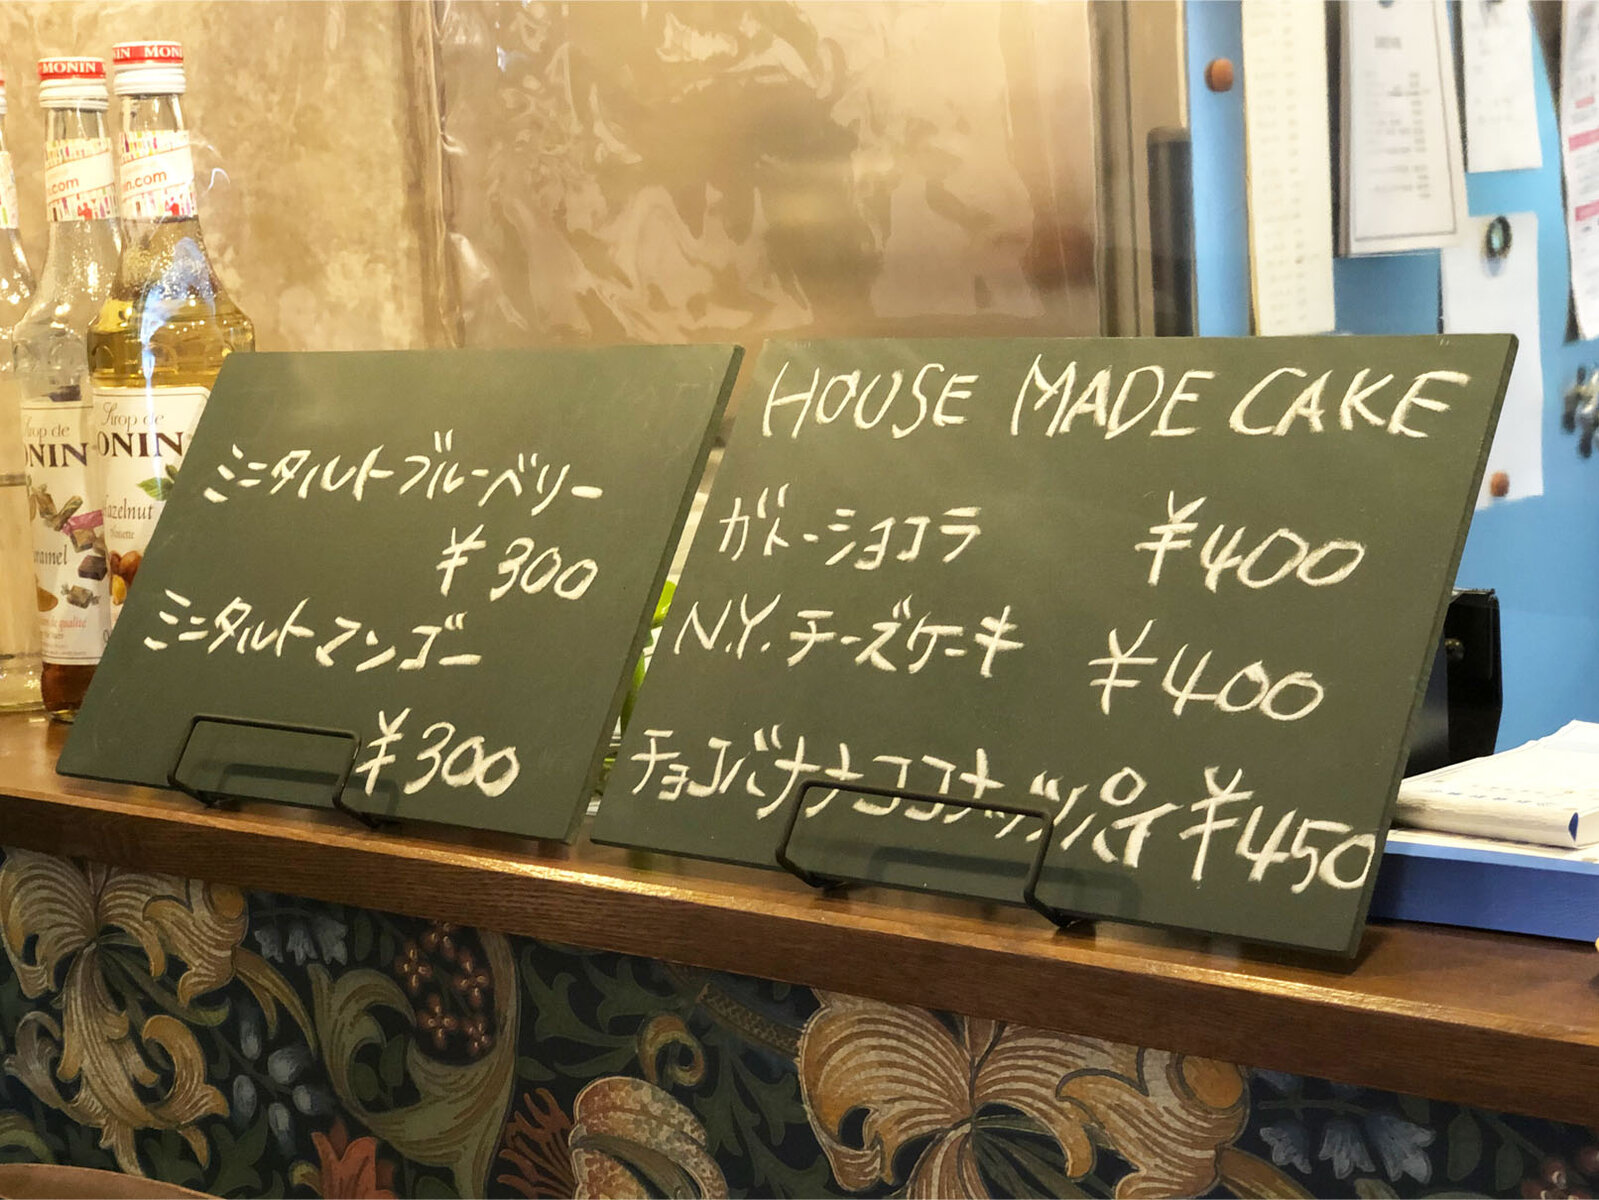 MONIN
MONIN
.com
in.com
Sirop de
MONIN
Hazelnut
Noisette
Sirop de
MONIN
Caramel
ミニタルトブルーベリー
¥300
ミニタルトマンゴー
¥300
HOUSE MADE CAKE
ガトーショコラ ¥400
N.Y.チーズケーキ ¥400
チョコバナナココナッツパイ ¥450